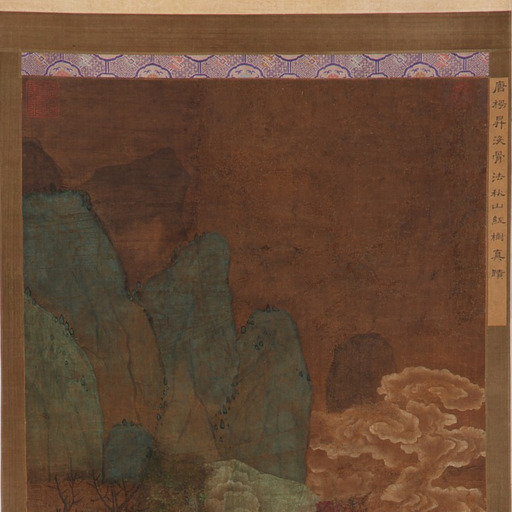 唐楊昇沒骨法秋山紅樹真蹟